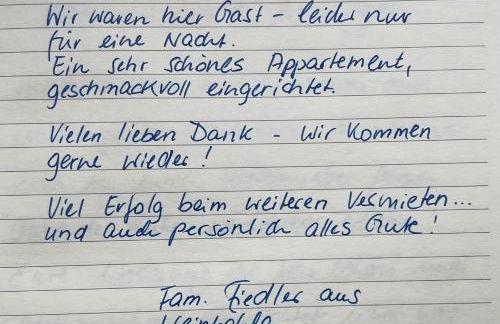 Wir waren hier Gast - leider nur
für eine Nacht.
Ein sehr schönes Appartement,
geschmackvoll eingerichtet.
Vielen lieben Dank - wir kommen
gerne wieder!
Viel Erfolg beim weiteren Vermieten...
und auch persönlich alles Gute!
Fam. Fiedler aus